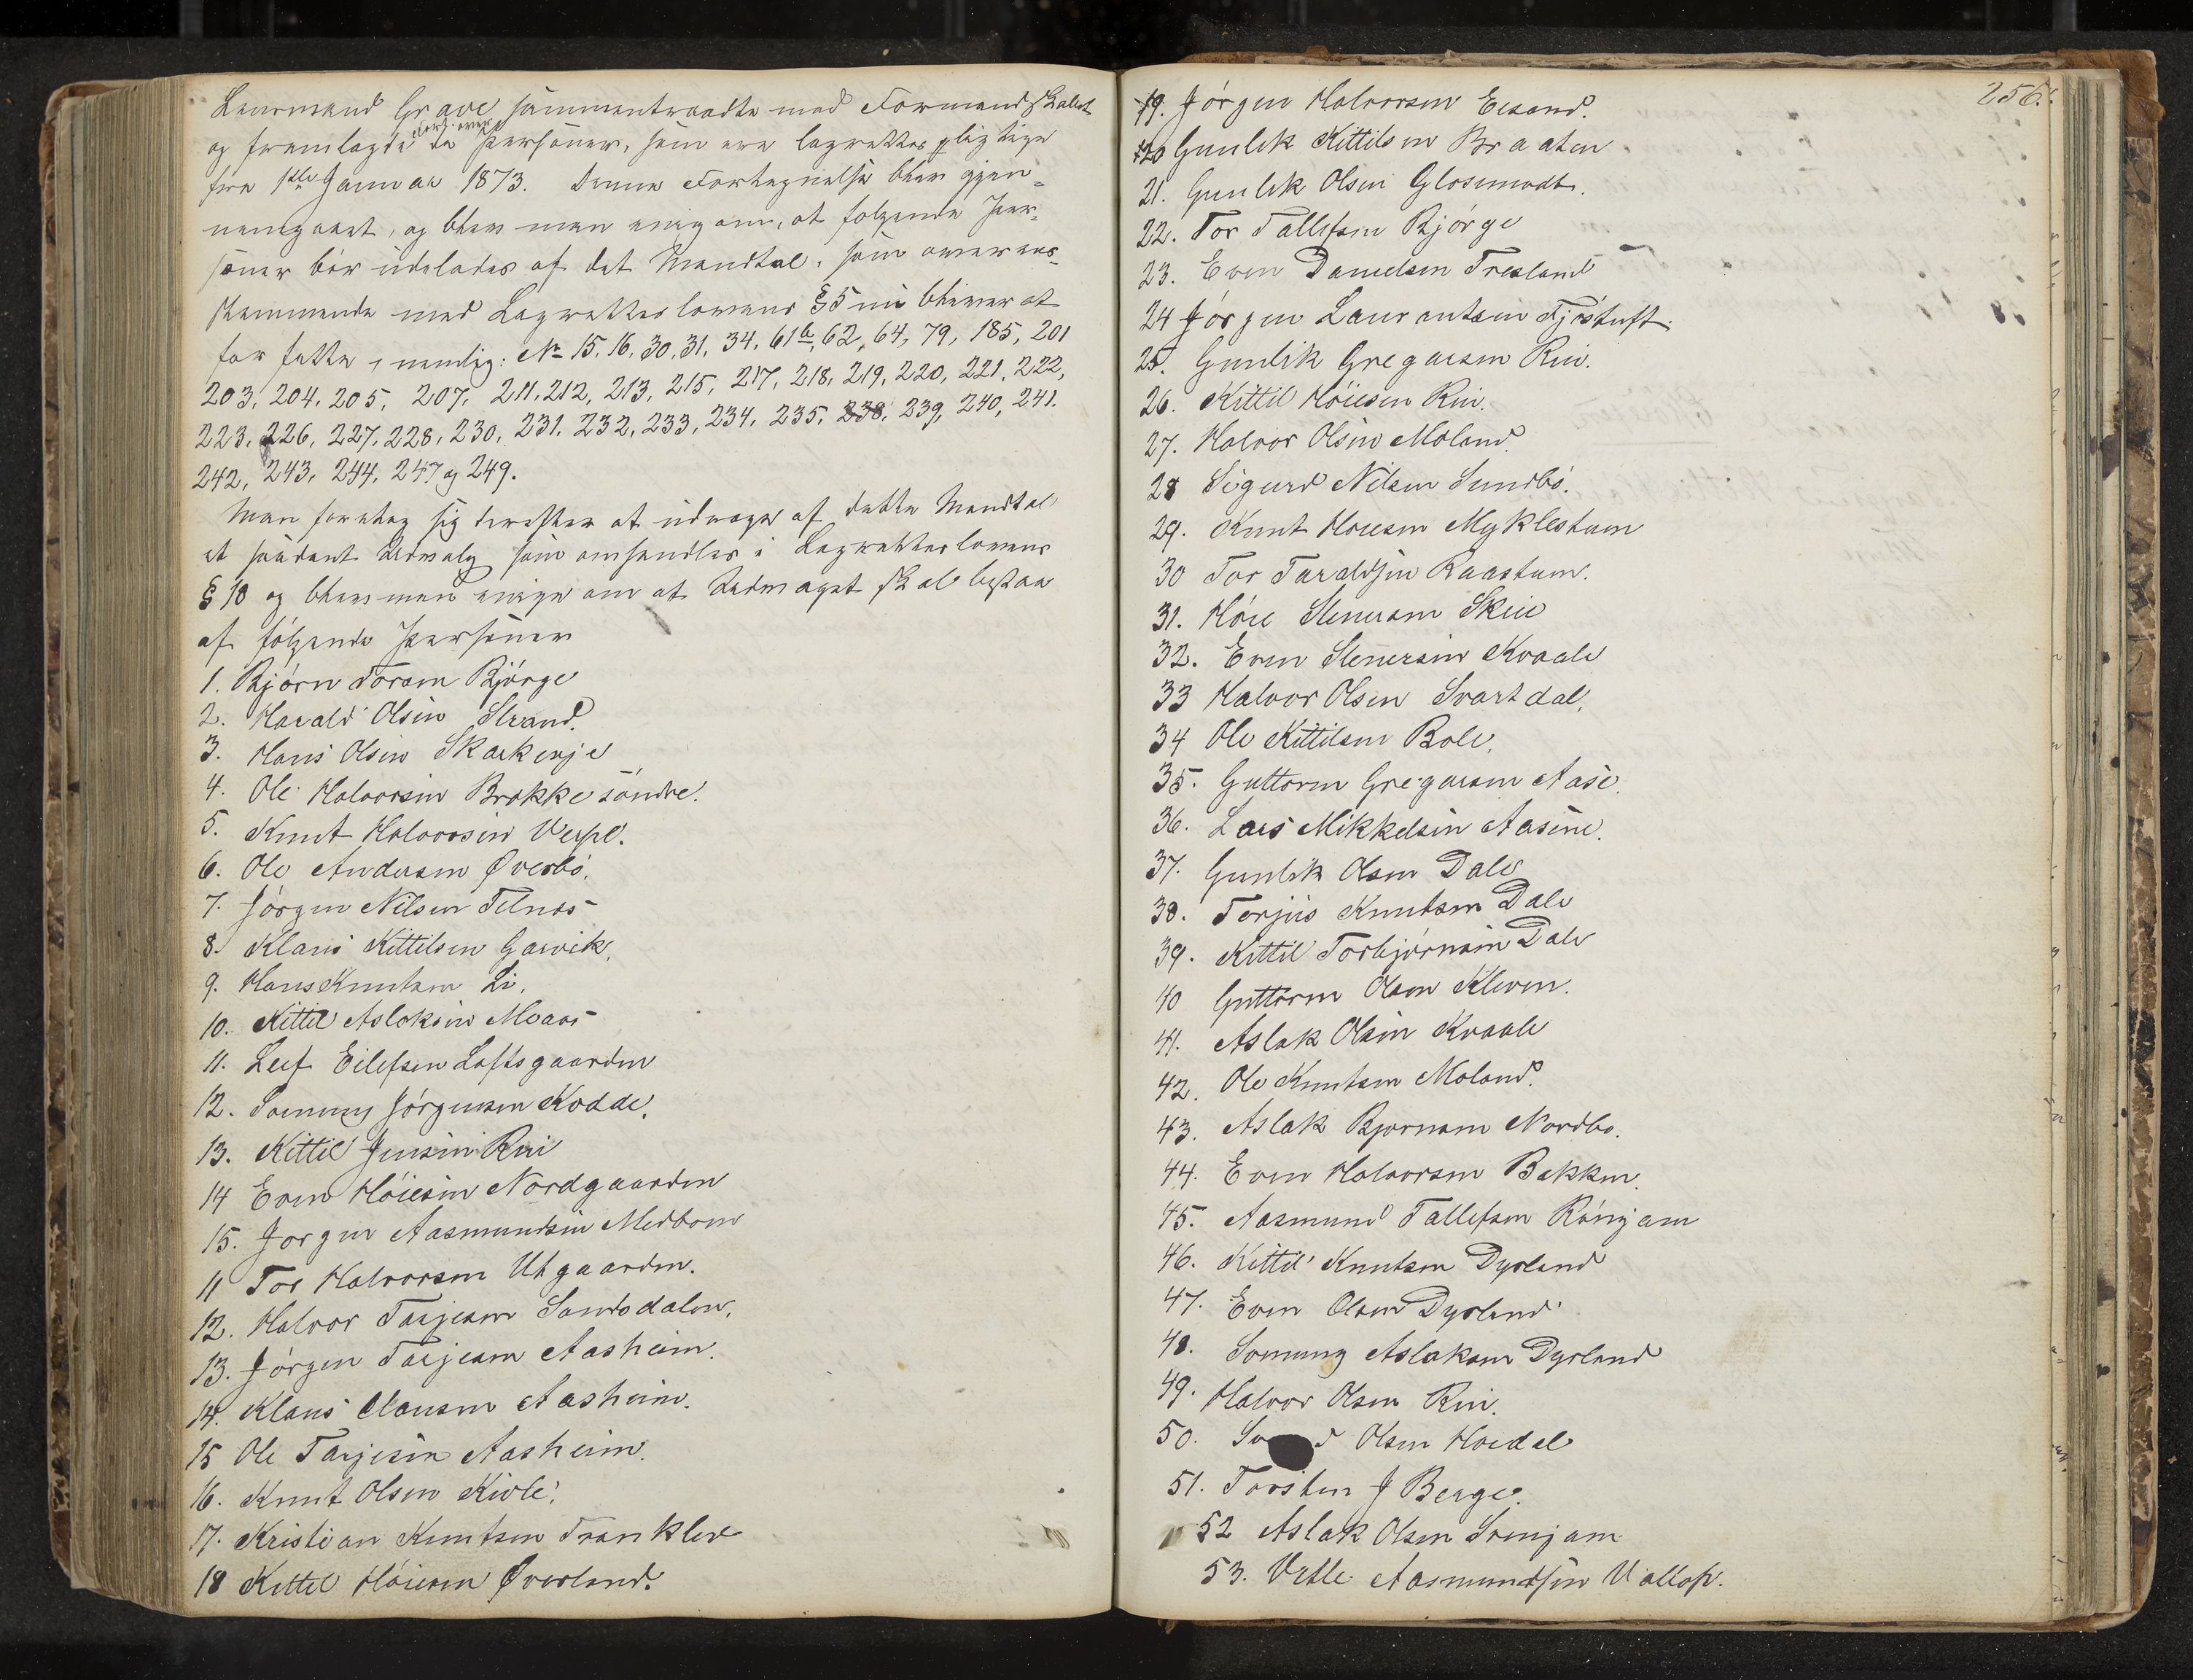 Leusmand Grave sammentraadte med Formandskabet
og fremlagde Fort. over de Personer, som ere lagrettespligtige
fra 1ste Januar 1873. Denne Fortegnelse blev gjen=
nemgaaet, og blev man enig om, at følgende Per=
soner bør udelades af det Mandtal, som overens=
stemmende med Lagretteslovens § 5 nu bliver at
forfatte, nemlig: No 15, 16, 30, 31, 34, 61b, 62, 64, 79, 185, 201
203, 204, 205, 207, 211, 212, 213, 215, 217, 218, 219, 220, 221, 222,
223, 226, 227, 228, 230, 231, 232, 233, 234, 235, 238, 239, 240, 241.
242, 243, 244, 247 og 249.
Man foretog sig derefter at udvage af dette Mandtal
et saadant Udvalg som omhandles i Lagretteslovens
§ 18 og blev man enige om at Udvaget skal bestaa
af følgende Personer
1. Bjørn Torsen Bjørge
2. Harald Olsen Strand.
3. Hans Olsen Skarkerje
4. Ole Halvorsen Brokke søndre.
5. Knut Halvorsen Verpe.
6. Ole Andersen Øverbø.
7. Jørgen Nilsen Telnæs
8. Klaus Kittilsen Garvik.
9. Hans Knutsen Li.
10. Kittil Aslaksen Moaas
11. Leif Eilefsen Loftsgaarden
12. Sveinung Jørgensen Kodde.
13. Kittil Jensen Rui
14 Even Høiesen Nordgaarden
15. Jørgen Aasmundsen Medboen
11 Tor Halvorsen Utgaarden.
12. Halvor Tarjesen Sandsdalen.
13. Jørgen Tarjesen Aasheim.
14. Klaus Clausen Aasheim.
15 Ole Tarjesen Aasheim.
16. Knut Olsen Kivle.
17. Kristian Knutsen Franklev
18 Kittil Høiesen Øverland.
256.
19. Jørgen Halvorsen Eisand.
20 Gunlek Kittilsen Braaten
21. Gunlek Olsen Glosimodt.
22. Tor Tallefsen Bjørge
23. Even Danielsen Tresland
24 Jørgen Laurantsen Fjøstuft.
25. Gunlik Gregarsen Rui.
26. Kittil Høiesen Rui.
27. Halvor Olsen Moland.
28 Sigurd Nilsen Sundbø.
29. Knut Hoiesen Myklestuen
30 Tor Taraldsen Raastuen.
31. Høie Stenersen Skeie
32. Even Stenersen Kvaale
33 Halvor Olsen Svartdal.
34 Ole Kittilsen Bole.
35. Guttorm Gregarsen Aase.
36. Lars Mikkelsen Aasene.
37. Gunlek Olsen Dale
38. Terjus Knutsen Dale
39. Kittil Torbjørnsen Dale
40 Guttorm Olsen Kleven.
41. Aslak Olsen Kvaale
42. Ole Knutsen Moland.
43. Aslak Bjørnsen Nordbø.
44. Even Halvorsen Bakken.
45. Aasmund Tallefsen Rønjam
46. Kittil Knutsen Dyrland
47. Even Olsen Dyrland
48. Sveinung Aslaksen Dyrland
49. Halvor Olsen Rui.
50. Olsen Hovdal
51. Torsten J Berge.
52 Aslak Olsen Srenjam
53. Vetle Aasmundsen Vallop.